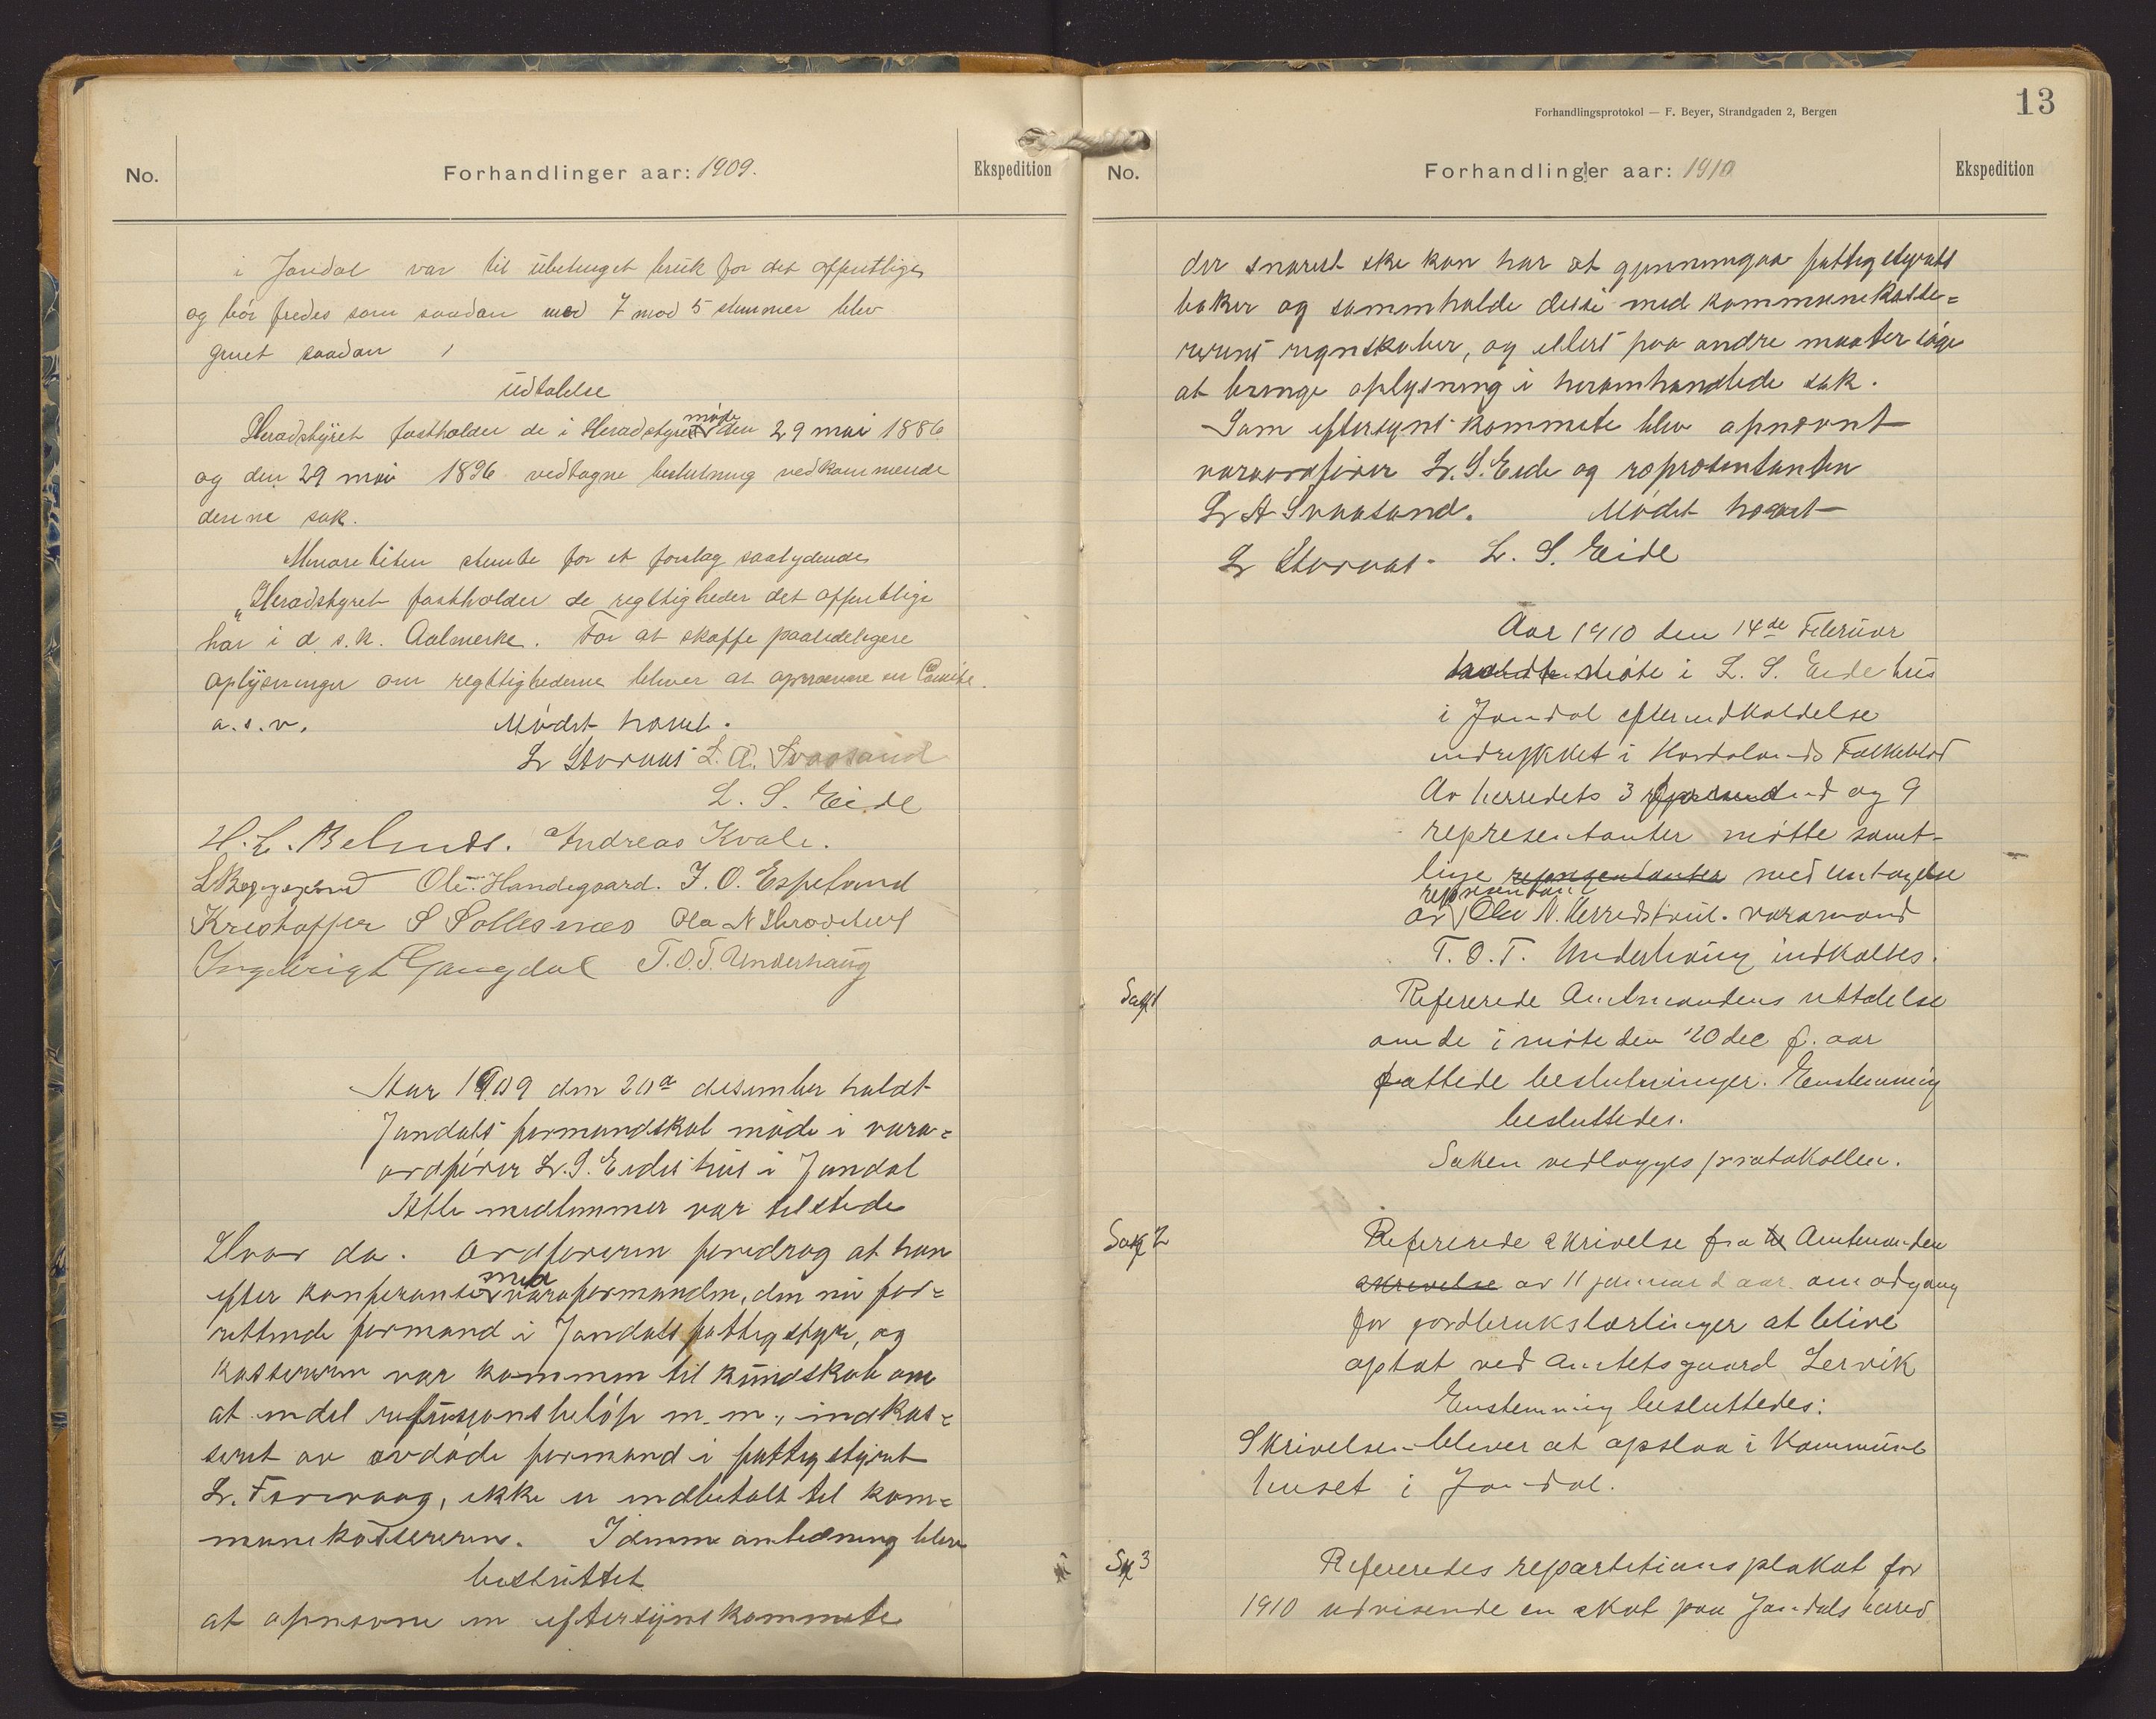 No.
Forhandlinger aar: 1909.
Ekspedition
i Jondal var til ubetinget bruk for det offentlige
og bör fredes som saadan med 7 mod 5 stemmer blev
givet saadan
udtalelse
Heradstyret fastholder de i Heradstyret möde den 29 mai 1886
og den 29 mai 1896 vedtagne beslutning vedkommende
denne sak.
Minoriteten stemte for et forslag saalydende
"Heradstyret fastholder de regttigheder det offentlige
har i d. s. k. Aalmerke. For at skaffe paalideligere
oplysninger om regttighederne bliver at opnævne en Comite.
o.s.v. Mödet hævet.
L Stornæs L. A. Svaasand
L. S. Eide
H. L. Belsnes. Andreas Kvale.
Ole Handegaard. J. O. Espeland
Kristoffer S Sollesnæs Ola N Herredstveit
Ingebrigt Gangdal T.O.T. Underhaug
Aar 1909 den 20de desember holdt
Jondals formandskab möde i vara=
ordförer L. S. Eides hus i Jondal
Alle medlemmer var tilstede
Hvor da. Ordföreren foredrog at han
efter konferanse med varaformanden, den nu for=
rettende formand i Jondals fattigstyre, og
kassereren var kommen til kundskab om
at endel refusjonsbelöp m. m., indkas=
seret av avdöde formand i fattigstyret
L. Torvaag, ikke er indbetalt til kom=
munekassereren. I denne anledning blev
besluttet
at opnævne en eftersynskommite
Forhandlingsprotokol — F. Beyer, Strandgaden 2, Bergen
13
No.
Forhandlinger aar: 1910
Ekspedition
der snarest ske kan har at gjennemgaa fattigstyrets
böker og sammholde disse med kommunekasse=
rerens regnskaber, og ellers paa andre maater söge
at bringe oplysning i heromhandlede sak.
Som eftersyns-kommite blev opnævnt
varaordförer L. S. Eide og repræsentanten
L A Svaasand. Mödet hævet
L Stornæs. L. S. Eide
Aar 1910 den 14de Februar
holdtes möte i L. S. Eide hus
i Jondal efter indkaldelse
indrykket i Hordalands Folkeblad
Av herredets 3 formænd og 9
representanter mötte samt-
lige representanter med undtagelse
av representant Ola N. Herredstveit. varamand
T. O. T. Underhaug indkaltes.
Sak 1
Refererede Amtmandens uttalelse
om de i möte den 20 dec f. aar
fattede beslutninger. Enstemmig
besluttedes.
Saken vedlægges protokollen.
Sak 2
Refererede skrivelse fra Amtmanden
skrivelse av 11 januar d aar om adgang
for jordbrukslærlinger at blive
optat ved Amtets gaard Lervik
Enstemmig besluttedes:
Skrivelsen bliver at opslaa i Kommune
huset i Jondal.
Sak 3
Refereredes repartitions plakat for
1910 udvisende en skat paa Jondals herred